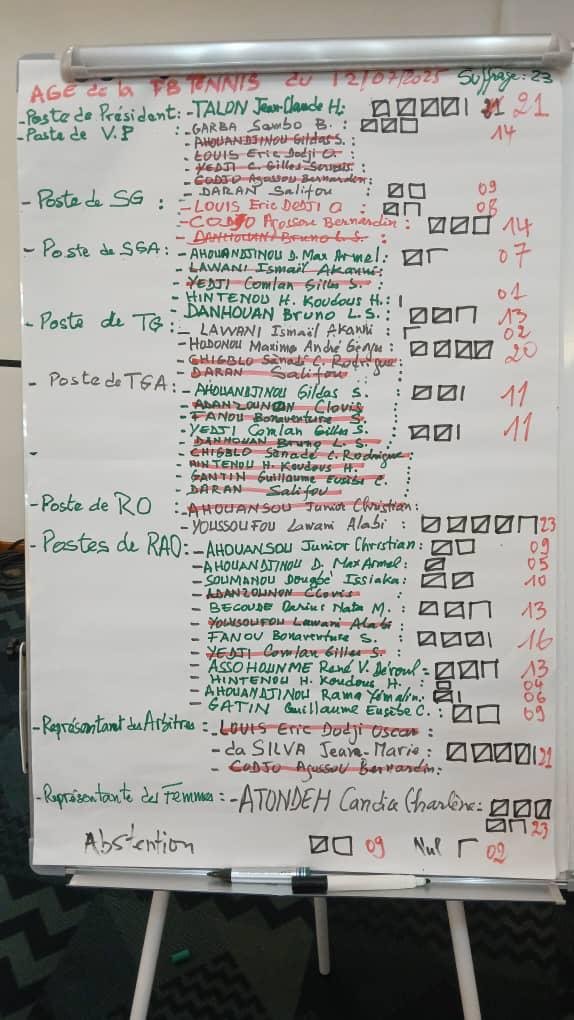 AGE de la FB TENNIS du 12/07/2025 Suffrage: 23
- Poste de Président: - TALON Jean-Claude H: 21
- Poste de V.P : - GARBA Sambo B. : 14
- AHOUANDJINOU Gildas S. :
- LOUIS Eric Dodji O. :
- YEDJI C. Gilles :
- CODJO Agossou Bernardin:
- DARAN Salifou : 09
- Poste de SG : - LOUIS Eric DEDJI O : 08
- CODJO Agossou Bernardin: 14
- DANHOUAN Bruno L.S. :
- Poste de SGA: - AHOUANDJINOU D. Max Armel: 07
- LAWANI Ismaïl Akanni:
- YEDJI Comlan Gilles S. :
- HINTENOU H. Koudous H.: 01
- DANHOUAN Bruno L.S. : 13
- Poste de TG : - LAWANI Ismaïl Akanni : 02
- HODONOU Maxime André : 20
- CHIGBLO Sanadé C. Rodrigue:
- DARAN Salifou :
- Poste de TGA: - AHOUANDJINOU Gildas S. : 11
- ADANZOUNON Clovis :
- FANOU Bonaventure S. :
- YEDJI Comlan Gilles S. : 11
- DANHOUAN Bruno L. S. :
- CHIGBLO Sanadé C. Rodrigue:
- HINTENOU H. Koudous H. :
- GANTIN Guillaume Eusèbe C. :
- DARAN Salifou :
- Poste de RO : - AHOUANSOU Junior Christian:
- YOUSSOUFOU Lawani Alabi : 23
- Postes de RAO: - AHOUANSOU Junior Christian: 09
- AHOUANDJINOU D. Max Armel: 05
- SOUMANOU Dougbé Issiaka: 10
- ADANZOUNON Clovis :
- BECOUDE Darius Nata M. : 13
- YOUSSOUFOU Lawani Alabi :
- FANOU Bonaventure S. : 16
- YEDJI Comlan Gilles S. :
- ASSOHOUNME René V. Déroul= 13
- HINTENOU H. Koudous H. : 04
- AHOUANDJINOU Rama : 06
- GATIN Guillaume Eusèbe C. : 09
- Représentant des Arbitres: - LOUIS Eric Dodji Oscar :
- da SILVA Jean-Marie : 21
- CODJO Agossou Bernardin:
- Représentante des Femmes: - ATONDEH Candia Charlène: 23
Abstention 09 Nul 02